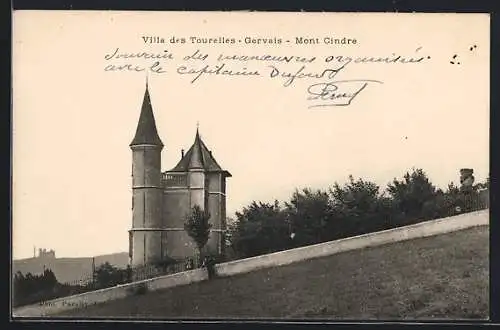 Villa des Tourelles - Gervais - Mont Cindre
Souvenir des manœuvres organisées
avec le capitaine Dufour